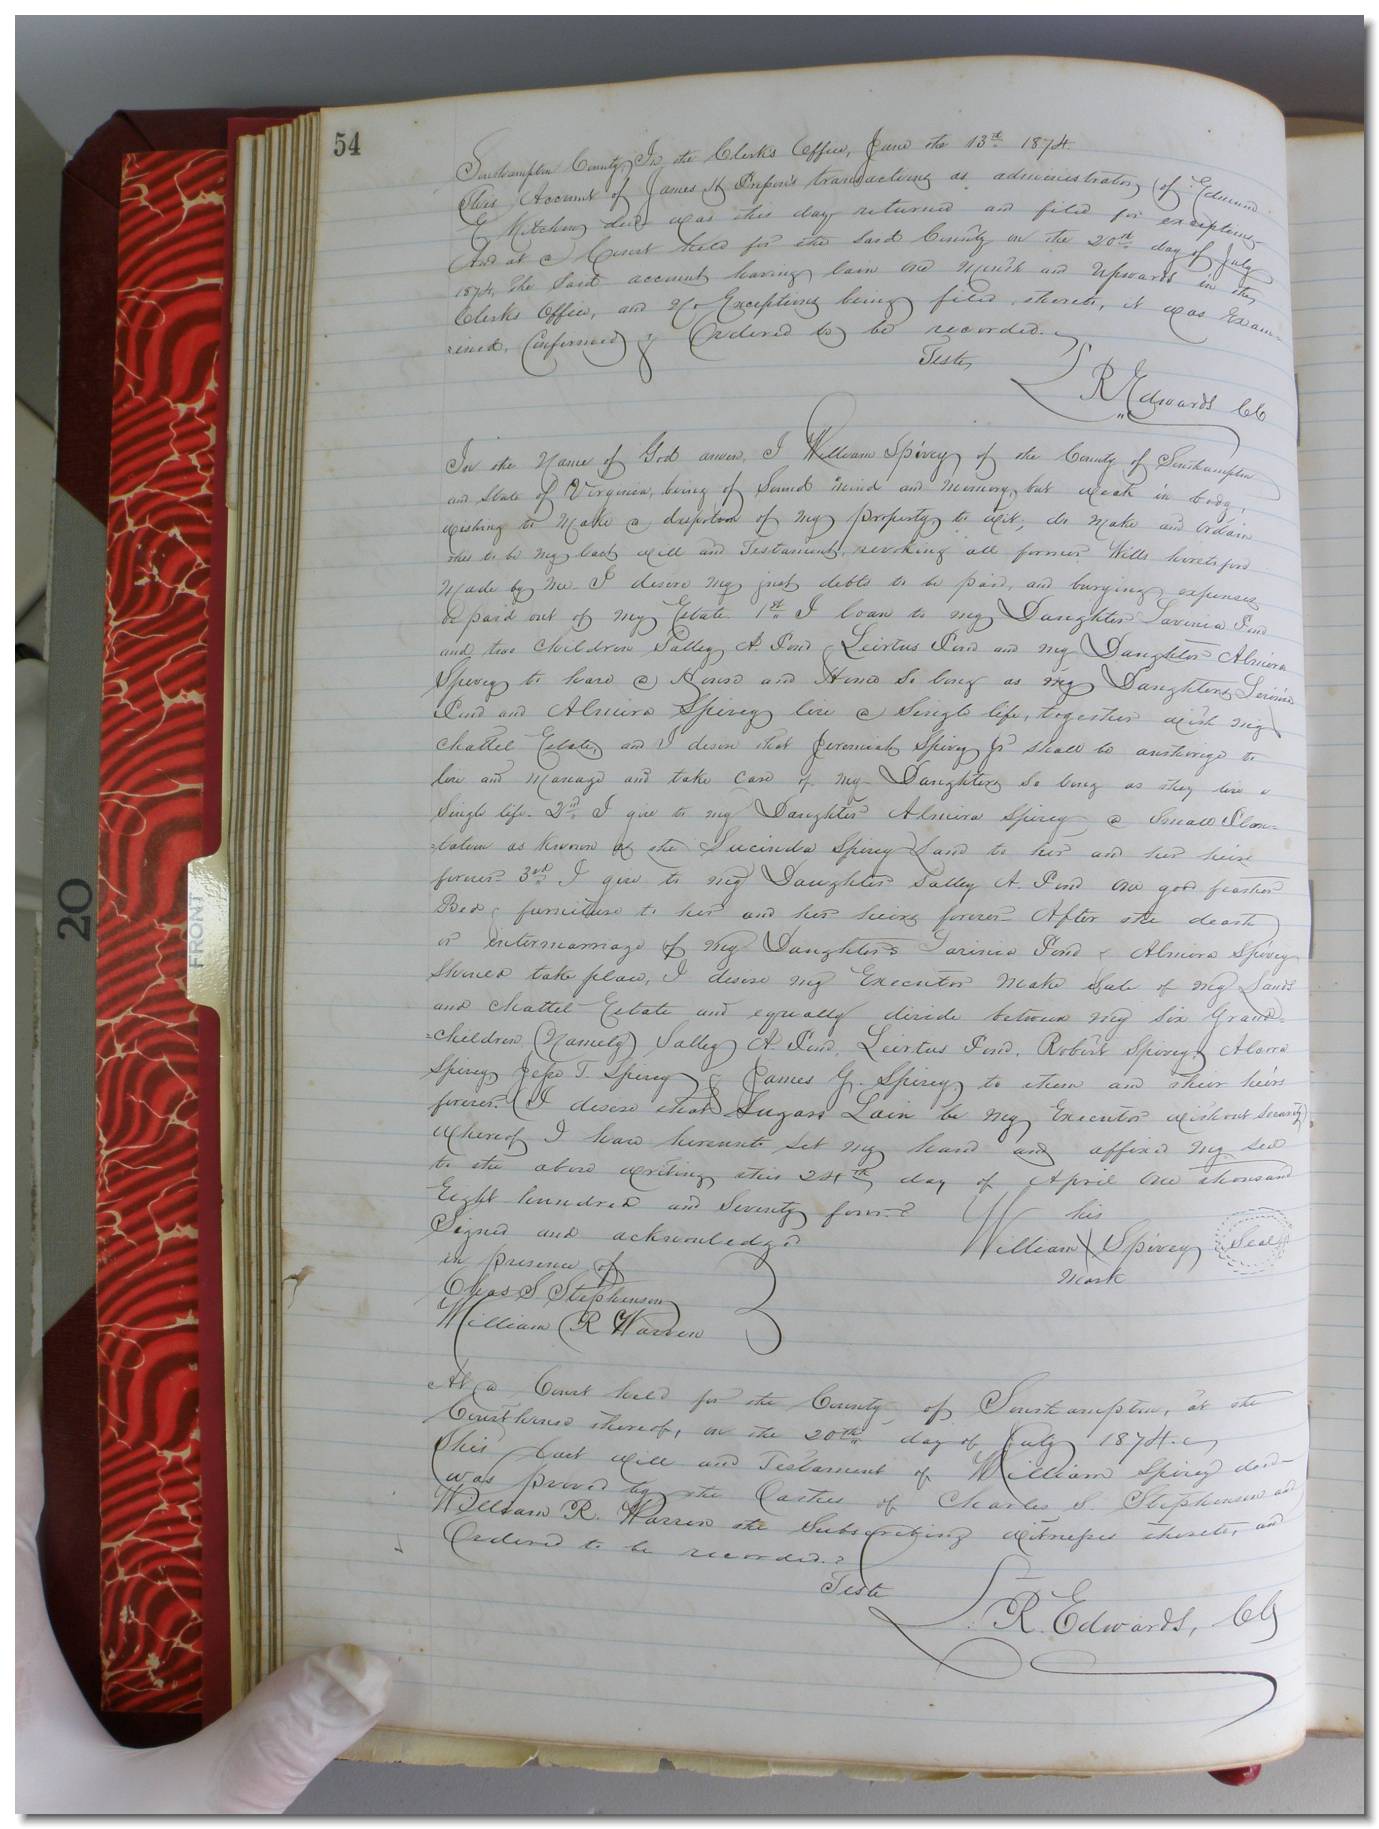 54
Southampton County, In the Clerk's Office, June the 13th 1874.
This Account of James H transacting as administrator of Edmund
E Mitchum decd was this day returned and filed for exceptions
And at a Court held for the said County on the 20th day of July
1874, The said account having lain one Month and Upwards in the
Clerks Office, and No Exceptions being filed thereto, it was Exam
ined, Confirmed & Ordered to be recorded.
Teste,
L R Edwards CC
In the Name of God amen, I William Spivey of the County of Southampton
and State of Virginia, being of Sound Mind and Memory, but weak in body,
wishing to Make a of my property to wit, do Make and Ordain
this to be my last will and Testament, revoking all former Wills heretofore
Made by me. I desire my just debts to be paid, and burying expenses
be paid out of my Estate 1st I loan to my Daughter Lavinia Pond
and two Children Salley A. Pond, Pond and my Daughter Almira
Spivey to have a House and Home So long as my Daughters Lavinia
Pond and Almira Spivey live a Single life, together with my
Chattel Estate, and I desire that Jeremiah Spivey Jr shall be authorize to
live and Manage and take care of my Daughters So long as they live a
Single life. 2nd I give to my Daughter Almira Spivey a Small Plan=
=tation as Known as the Lucinda Spivey Land to her and her heirs
forever 3rd I give to my Daughter Salley A. Pond one good feather
Bed & furniture to her and her heirs forever After the death
or intermarriage of my Daughters Lavinia Pond & Almira Spivey
Should take place, I desire my Executor Make Sale of my Lands
and Chattel Estate and equally divide between my Six Grand=
=children (Namely) Salley A. Pond, Pond, Robert Spivey,
Spivey Jesse T. Spivey & James G. Spivey, to them and their heirs
forever. I desire that Lain be my Executor without security
whereof I have hereunto Set my hand and affixed my seal
to the above writing this 24th day of April One thousand
Eight hundred and Seventy four.
Signed and acknowledged
in presence of
Chas S Stephenson
William R Warren
his
William X Spivey Seal
mark
At a Court held for the County of Southampton, at the
Courthouse thereof, on the 20th day of July 1874.
This last Will and Testament of William Spivey decd
was proved by the Oaths of Charles S. Stephenson and
William R. Warren the Subscribing witnesses thereto, and
Ordered to be recorded.
Teste
L. R. Edwards, CC
20
FRONT